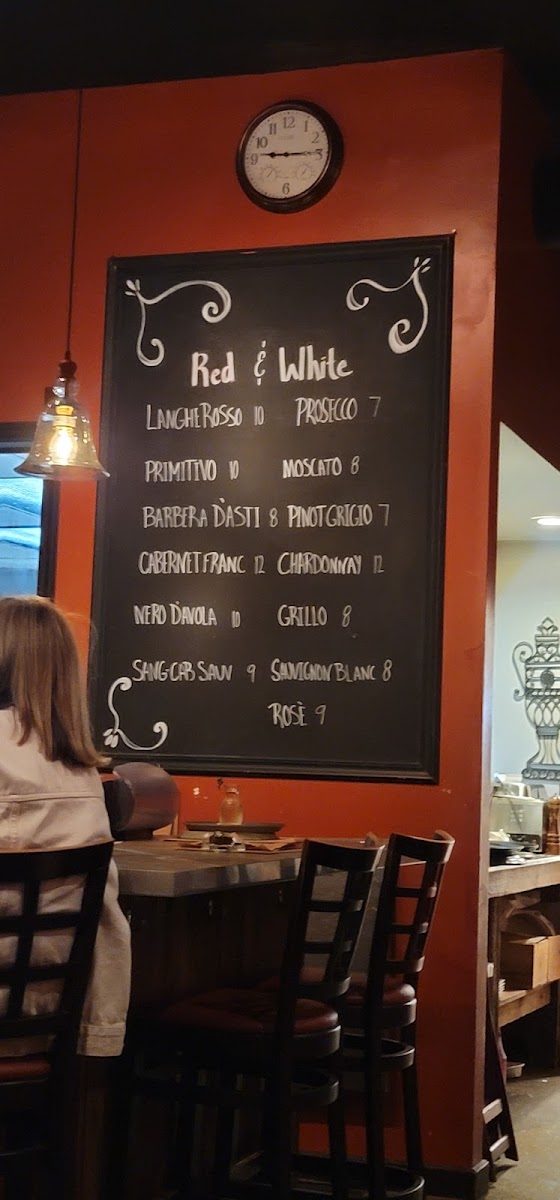 12
11 1
10 2
9 3
6
Red & White
LANGHE ROSSO 10 PROSECCO 7
PRIMITIVO 10 MOSCATO 8
BARBERA D'ASTI 8 PINOT GRIGIO 7
CABERNET FRANC 12 CHARDONNAY 12
NERO D'AVOLA 10 GRILLO 8
SANG-CAB SAUV 9 SAUVIGNON BLANC 8
ROSÈ 9